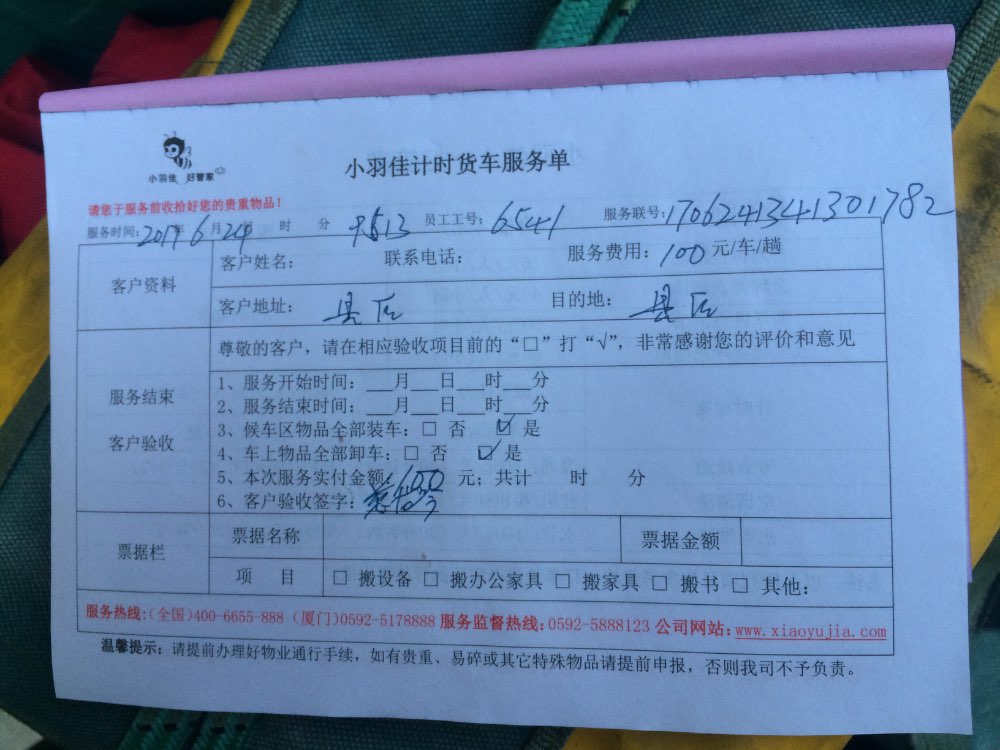 小羽佳 好管家
小羽佳计时货车服务单
请您于服务前收拾好您的贵重物品！
服务时间：2017年6月24 时 分 9513 员工工号：6541 服务联号：1706241341301782
客户资料
客户姓名： 联系电话： 服务费用：100元/车/趟
客户地址：县后 目的地：县后
服务结束
客户验收
尊敬的客户，请在相应验收项目前的“□”打“√”，非常感谢您的评价和意见
1、服务开始时间：___月___日___时___分
2、服务结束时间：___月___日___时___分
3、候车区物品全部装车：□ 否 ☑ 是
4、车上物品全部卸车：□ 否 ☑ 是
5、本次服务实付金额：100 元；共计 时 分
6、客户验收签字：
票据栏
票据名称 票据金额
项 目 □ 搬设备 □ 搬办公家具 □ 搬家具 □ 搬书 □ 其他：
服务热线:(全国)400-6655-888 (厦门)0592-5178888 服务监督热线:0592-5888123 公司网站：www.xiaoyujia.com
温馨提示：请提前办理好物业通行手续，如有贵重、易碎或其它特殊物品请提前申报，否则我司不予负责。